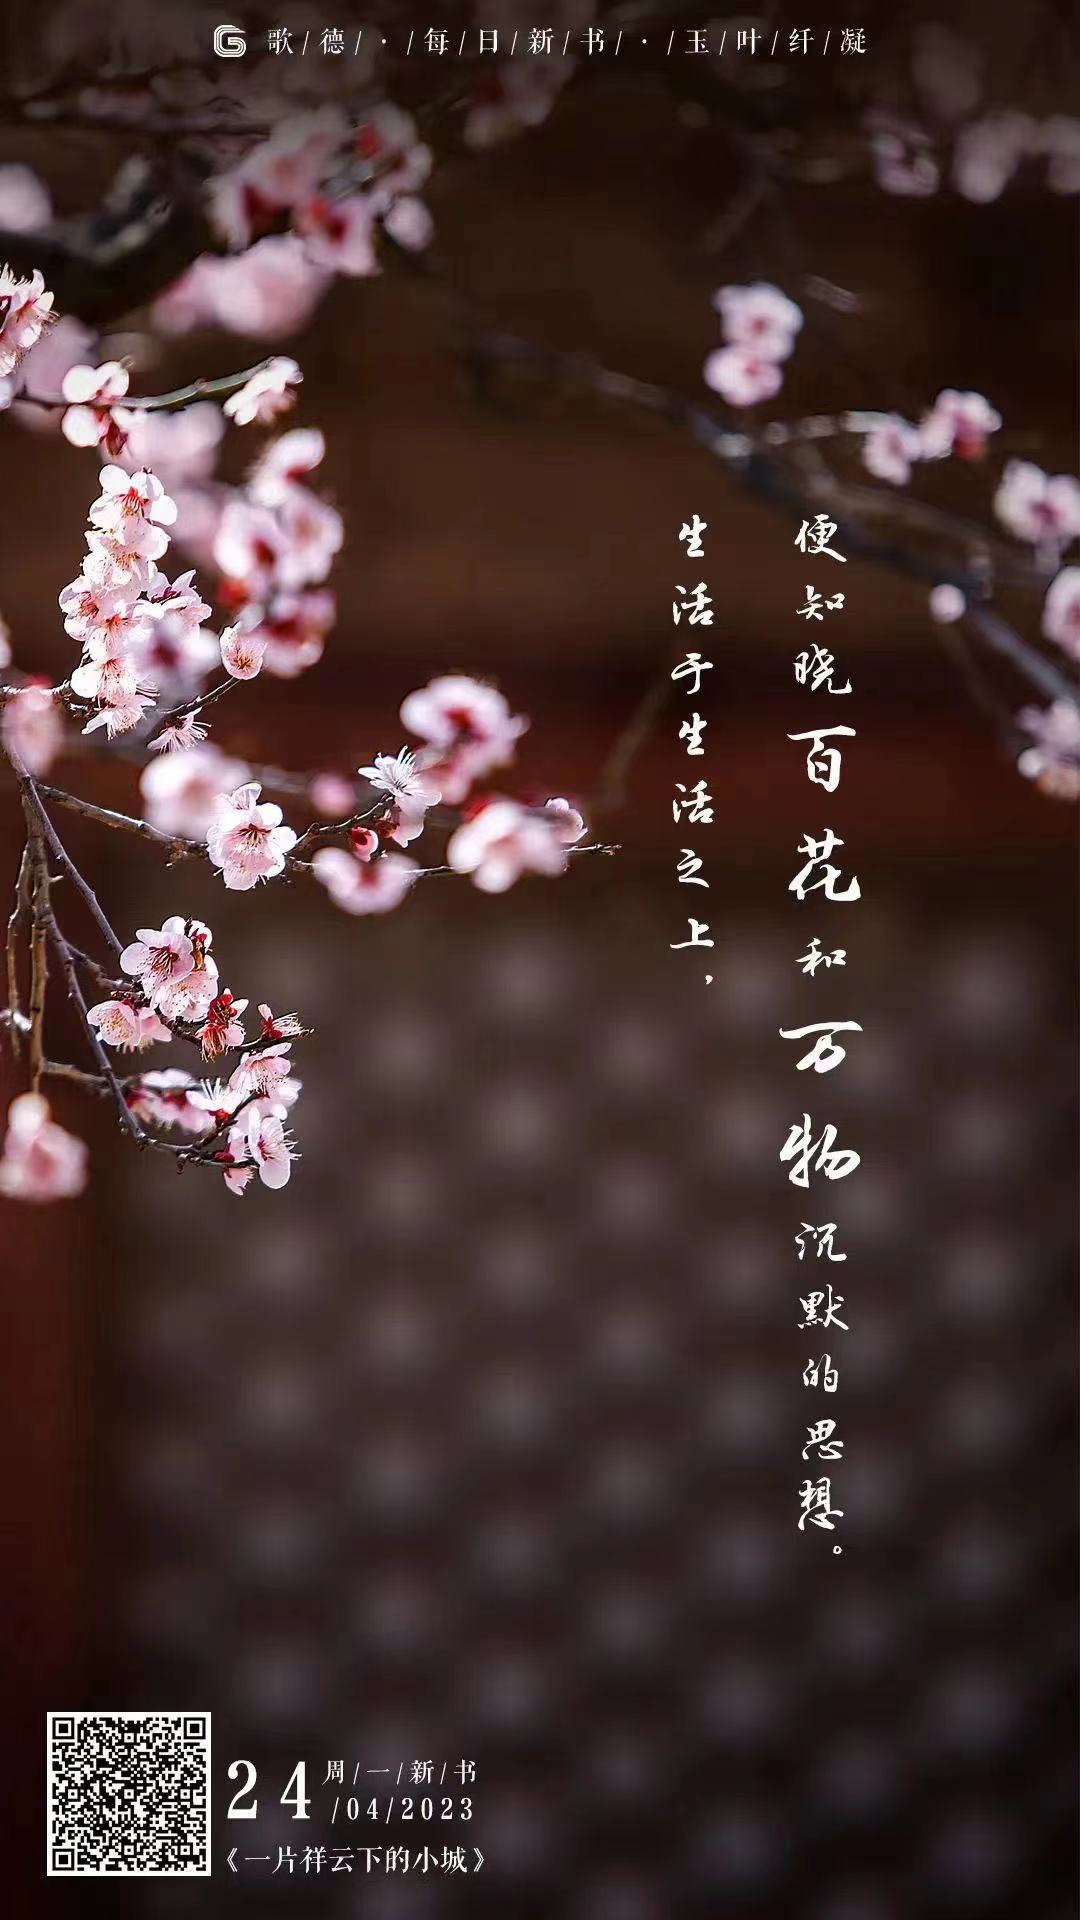 歌/德/·/每/日/新/书/·/玉/叶/纤/凝
生活于生活之上，
便知晓百花和万物沉默的思想。
24
周/一/新/书
/04/2023
《一片祥云下的小城》